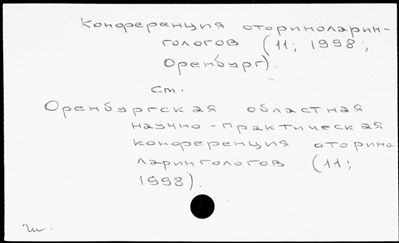 Конференция оториноларин-
гологов (11; 1998;
Оренбург).
см.
Оренбургская областная
научно-практическая
конференция оторино
ларингологов (11;
1998).